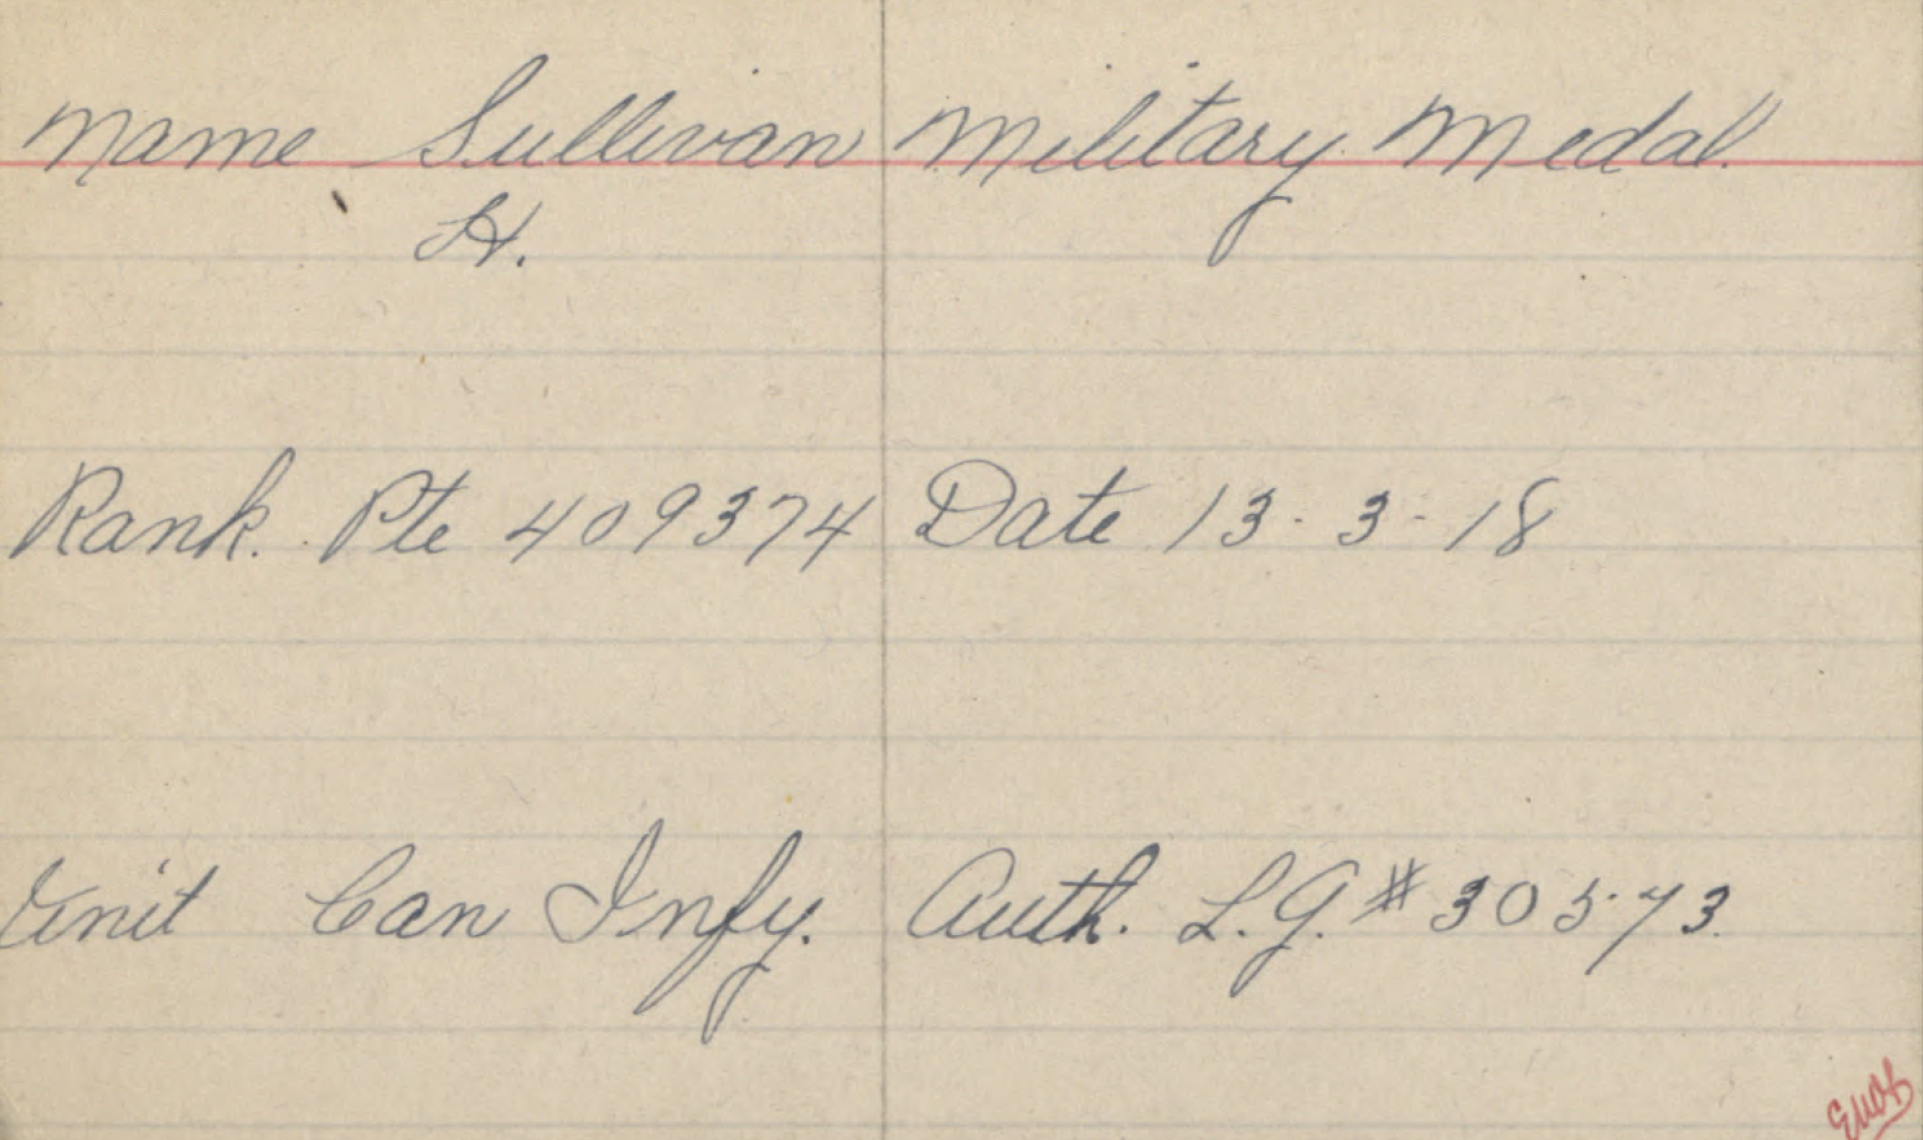 Name Sullivan Military Medal.
H.
Rank. Pte 409374 Date 13-3-18
Unit Can Infy. Auth. L.G. # 30573.